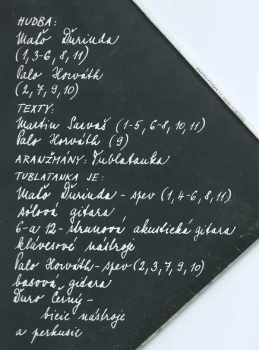 HUDBA:
Maťo Ďurinda
(1, 3-6, 8, 11)
Palo Horváth
(2, 7, 9, 10)
TEXTY:
Martin Sarvaš (1-5, 6-8, 10, 11)
Palo Horváth (9)
ARANŽMÁNY: Tublatanka
TUBLATANKA JE:
Maťo Ďurinda - spev (1, 4-6, 8, 11)
sólová gitara
6-a 12-strunová akustická gitara
klávesové nástroje
Palo Horváth - spev (2, 3, 7, 9, 10)
basová gitara
Ďuro Černý -
bicie nástroje
a perkusie